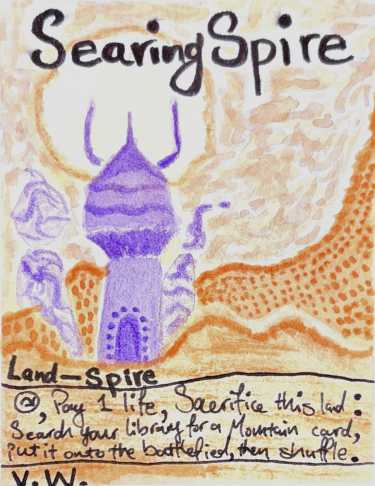 Searing Spire
Land — Spire
, Pay 1 life, Sacrifice this land:
Search your library for a Mountain card,
put it onto the battlefied, then shuffle.
V.W.